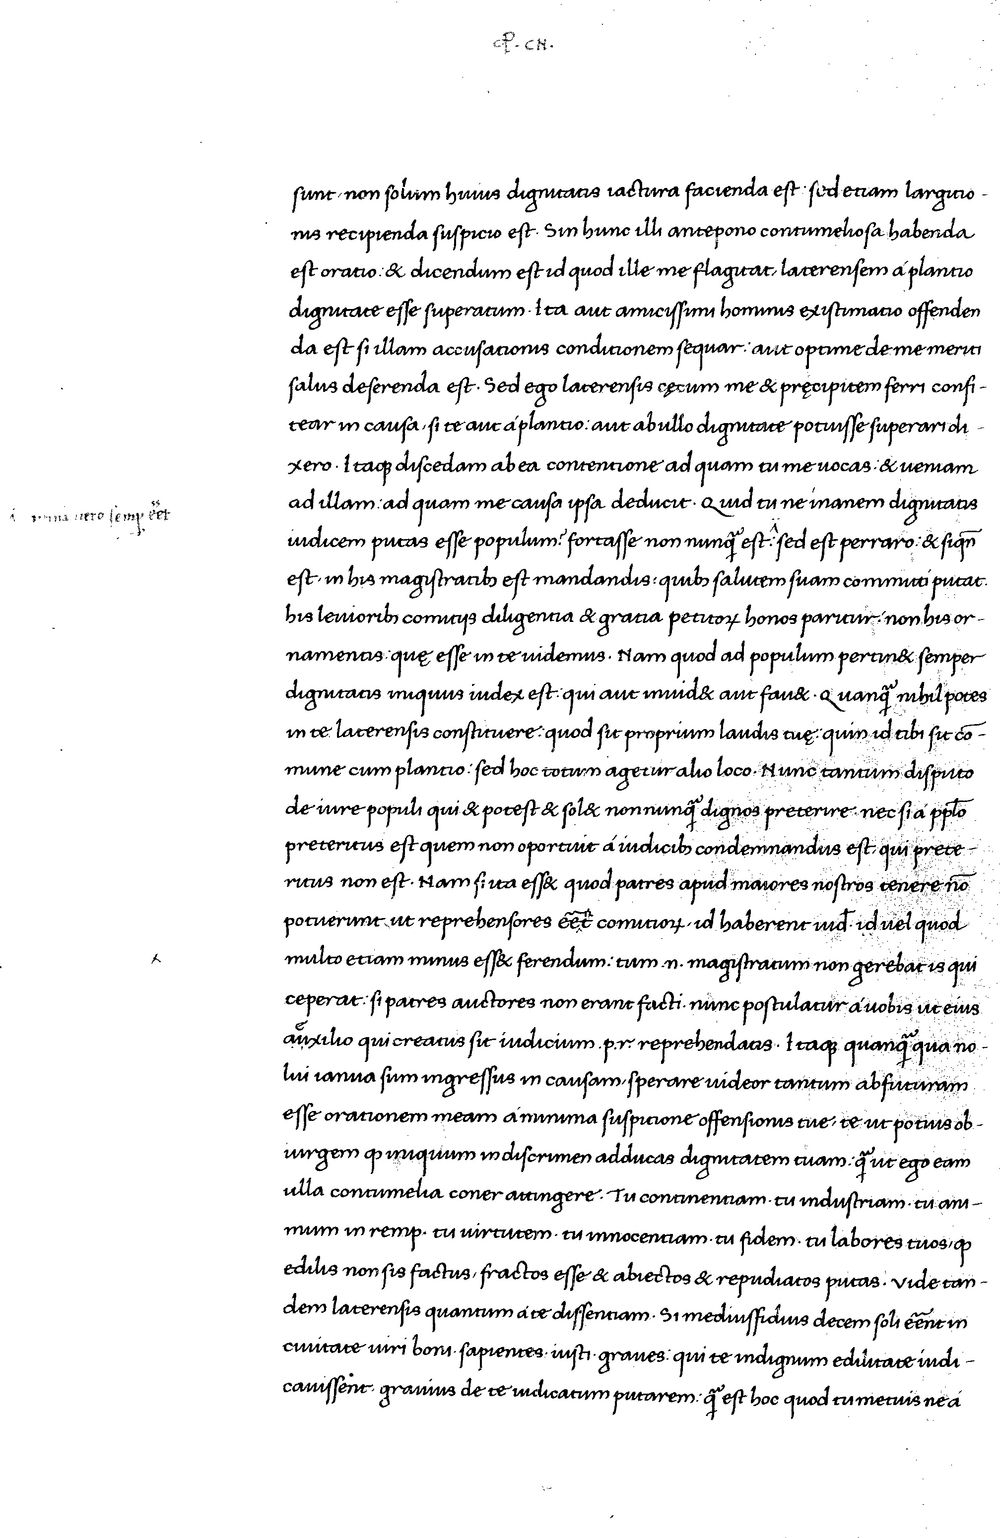 ꝓ · CN ·
sunt · non solum huius dignitatis iactura facienda est : sed etiam largitio -
nis recipienda suspicio est · Sin hunc illi antepono contumeliosa habenda
est oratio : & dicendum est id quod ille me flagitat , laterensem á plantio
dignitate esse superatum · Ita aut amicissimi hominis existimatio offenden
da est si illam accusationis conditionem sequar : aut optime de me meriti
salus deserenda est · Sed ego laterensis cęcum me & pręcipitem ferri confi -
tear in causa , si te aut á plantio : aut ab ullo dignitate potuisse superari di -
xero · Itaqꝫ discedam ab ea contentione ad quam tu me uocas : & ueniam
ad illam : ad quam me causa ipsa deducit · Quid tu ne inanem dignitatis
uero semp eēt
iudicem putas esse populum ? fortasse non nunq̃ est : sed est perraro : & siqn̄
est , in his magistratibꝫ est mandandis : quibꝫ salutem suam committi putat ·
his leuioribꝫ comitijs diligentia & gratia petitoꝝ honos paritur : non his or -
namentis : quę esse in te uidemus · Nam quod ad populum pertin& semper
dignitatis iniquus iudex est : qui aut inuid& aut fau& · Quanq̃ nihil potes
in te laterensis constituere : quod sit proprium laudis tuę : quin id tibi sit cō -
mune cum plantio : sed hoc totum agetur alio loco · Nunc tantum disputo
de iure populi qui & potest & sol& nonnunq̃ dignos preterire : nec si á pplo
preteritus est quem non oportuit á iudicibꝫ condemnandus est , qui prete -
ritus non est · Nam si ita ess& quod patres apud maiores nostros tenere nō
potuerunt ut reprehensores eēt comitioꝝ · id haberent iud · id uel quod
multo etiam minus ess& ferendum : tum .n. magistratum non gerebat is qui
ceperat : si patres auctores non erant facti · nunc postulatur á uobis ut eius
auxilio qui creatus sit iudicium .p.r. reprehendatis · Itaqꝫ quanq̃ qua no -
lui ianua sum ingressus in causam , sperare uideor tantum abfuturam
esse orationem meam á minima suspitione offensionis tue , te ut potius ob -
iurgem ꝙ iniquum in discrimen adducas dignitatem tuam : q̃ ut ego eam
ulla contumelia coner attingere · Tu continentiam · tu industriam · tu ani -
mum in remp · tu uirtutem · tu innocentiam · tu fidem · tu labores tuos , ꝙ
edilis non sis factus , fractos esse & abiectos & repudiatos putas · Vide tan -
dem laterensis quantum á te dissentiam · Si mediusfidius decem soli eēnt in
ciuitate uiri boni · sapientes · iusti · graues : qui te indignum edilitate iudi -
cauissent · grauius de te iudicatum putarem : q̃ est hoc quod tu metuis ne á